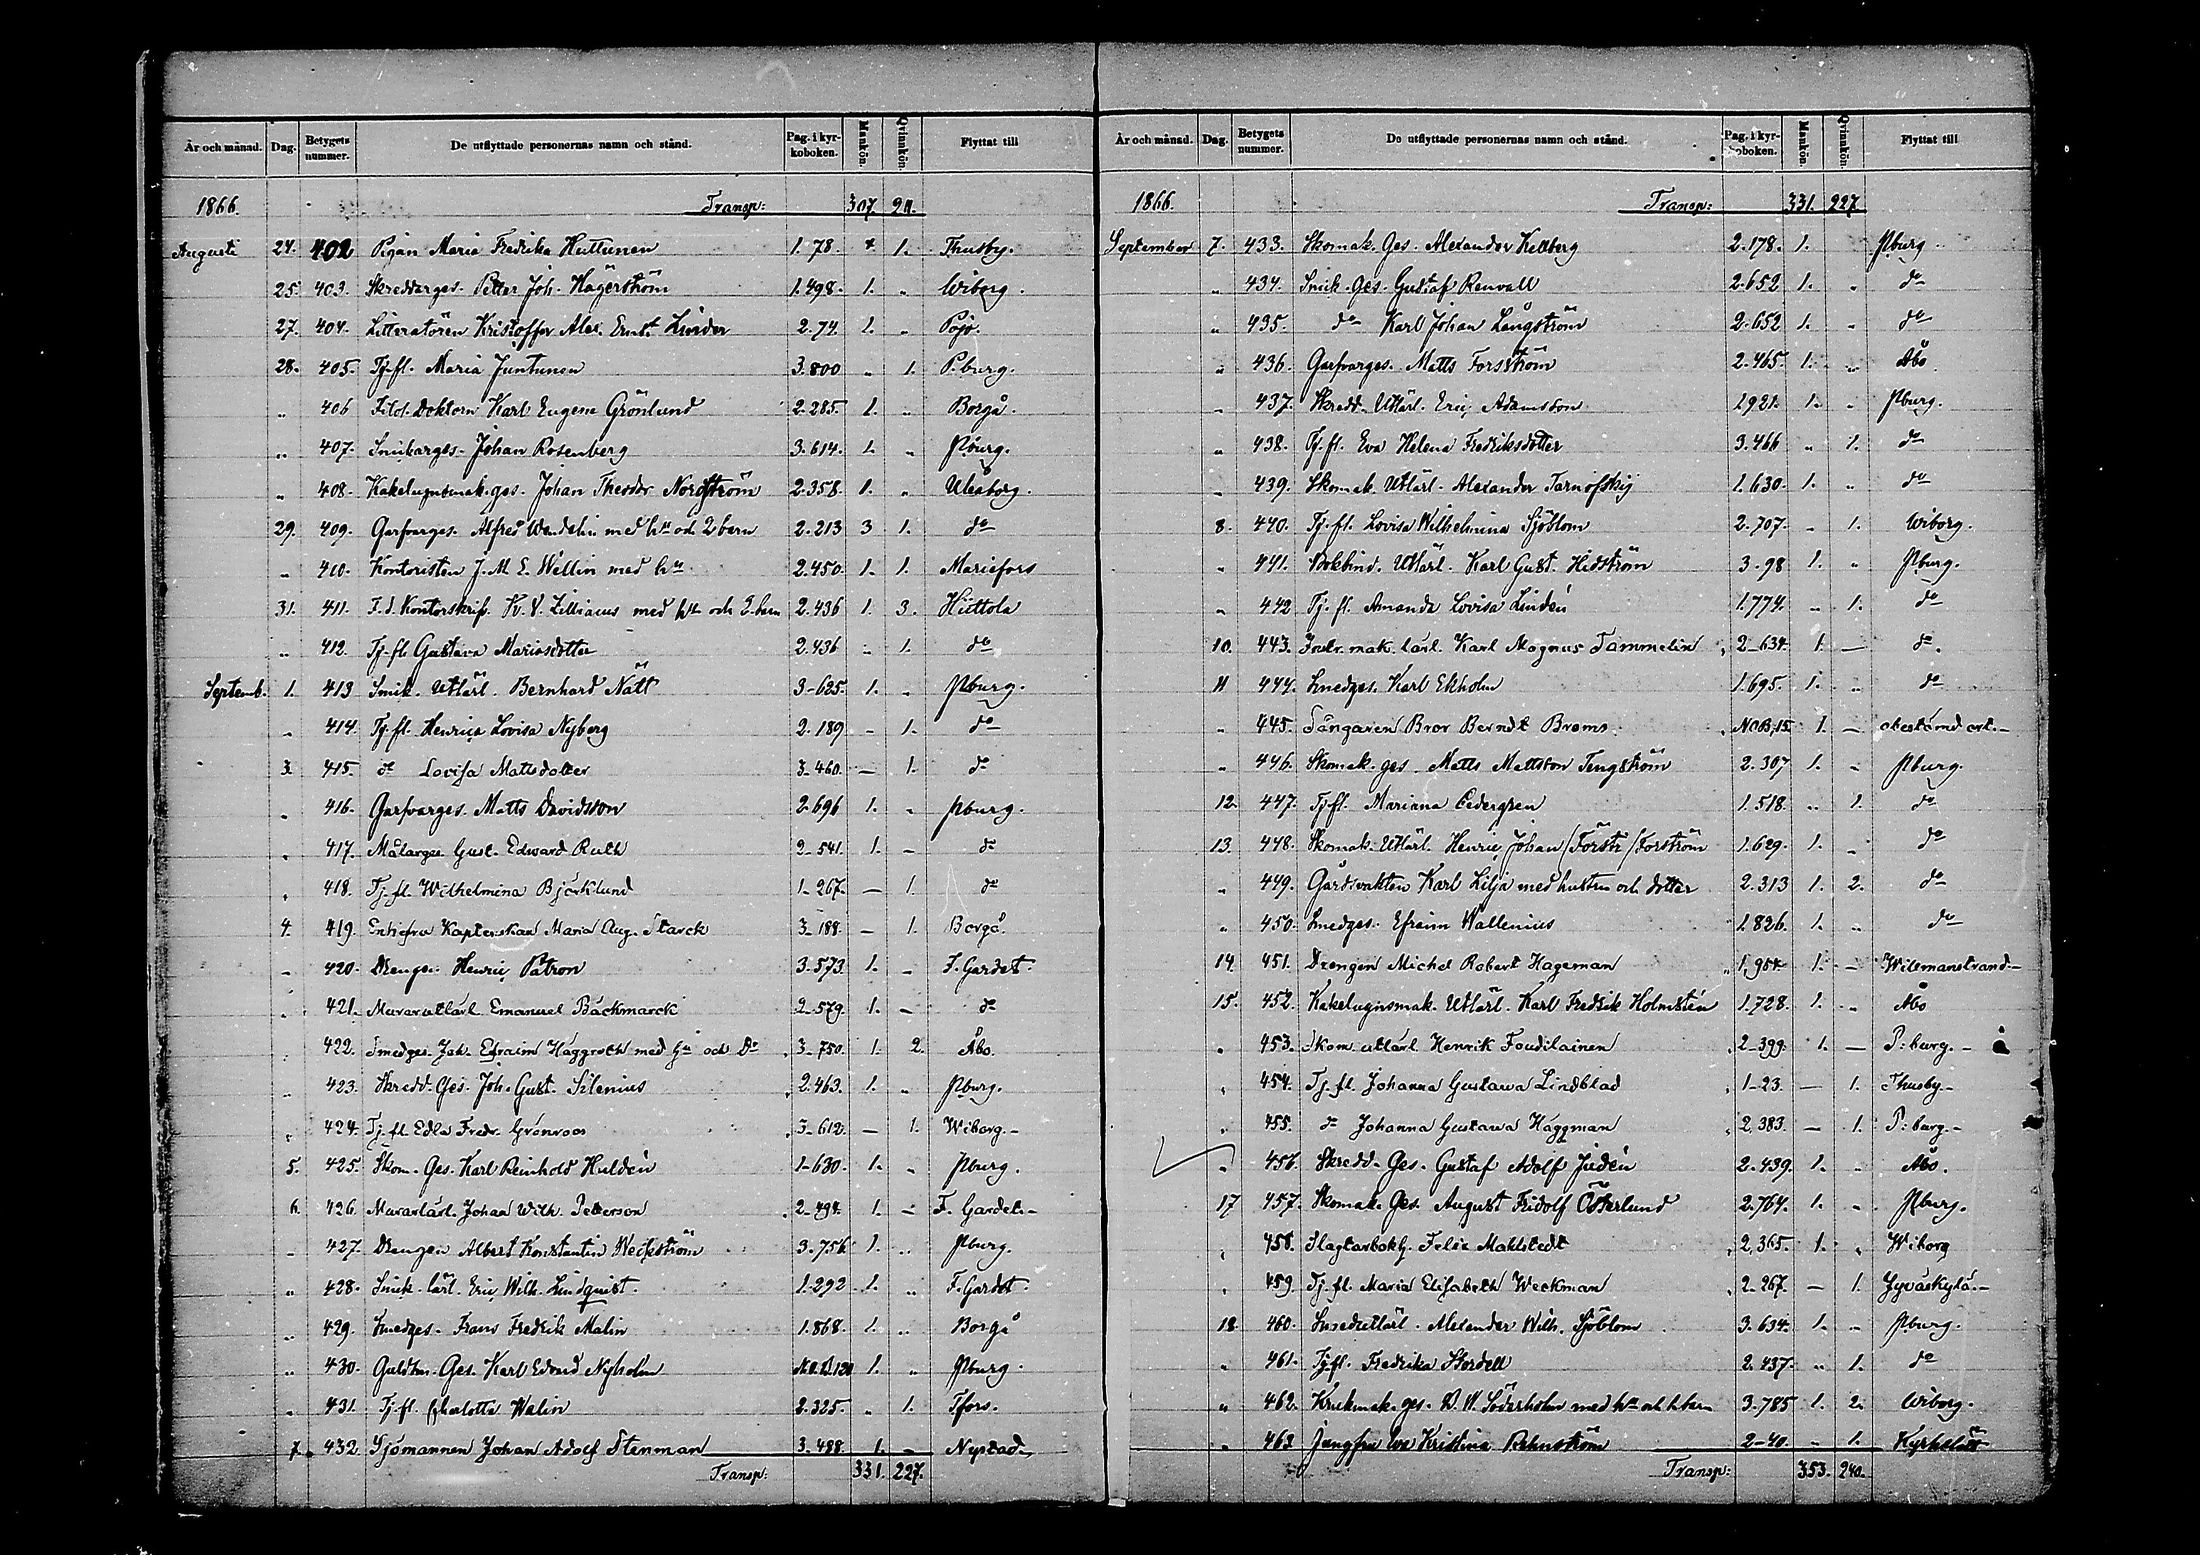 År och månad. Dag. Betygets nummer. De utflyttade personernas namn och stånd. Pag. i kyrkoboken. Mankön. Qvinnkön. Flyttat till
1866. Transp: 307. 211.
Augusti 24. 402 Pigan Maria Fredrika Huttunen 1. 78. 1. Thusby.
25. 403. Skreddarges. Petter Joh. Hägerström 1.498. 1. " Wiborg.
27. 404. Litteratören Kristoffer Alex. Ernst Linder 2.74. 1. " Pojo.
28. 405. Tj.fl. Maria Juntunen 3.800 " 1. P.burg.
" 406 Filos. Doktorn Karl Eugene Grönlund 2.285. 1. " Borgå.
" 407. Snickarges. Johan Rosenberg 3.614. 1. " Pburg.
" 408. Kakelugnsmak.ges. Johan Theodor Nordström 2.358. 1. " Uleåborg.
29. 409. Garfvarges. Alfred Wendelin med hu och 2 barn 2.213 3 1. do
" 410. Kontoristen J. M. E. Wellin med hu 2.450. 1. 1. Mariefors
31. 411. F.d. Kontorskrif. Kv. V. Zilliacus med hu och 2 barn 2.436 1. 3. Hiittola
" 412. Tj.fl Gustava Mariasdotter 2.436 " 1. do
Septemb. 1. 413 Snik. Utlärl. Bernhard Nätt 3-625. 1. " Pburg.
" 414. Tj.fl. Henrica Lovisa Nyberg 2.189 - 1. do
3. 415. do Lovisa Mattsdotter 3-460. — 1. do
" 416. Garfvarges. Matts Davidsson 2.696 1. " Pburg.
" 417. Målarges Gust. Edward Ruth 2-541. 1. — do
" 418. Tj.fl. Wilhelmina Björklund 1-267. — 1. do
4. 419. Enkefru Kaptenskan Maria Aug. Starck 3-188. — 1. Borgå.
" 420. Drengen Henric Patron 3.573. 1. " F. Gardet.
" 421. Murarutlärl. Emanuel Bäckmarck 2-579. 1. — do
" 422. Smedges. Joh. Efraim Häggroth med Hu och Dr 3-750. 1. 2. Åbo.
" 423. Skredd. Ges. Joh. Gust. Silenius 2.463. 1. " Pburg.
" 424. Tj.fl. Edla Fredr. Grönroos 3-612. — 1. Wiborg.-
5. 425. Skom. Ges. Karl Reinhold Huldén 1-630. 1. " Pburg.
6. 426. Murarlärl. Johan Wilh. Petterson 2-494. 1. — F. Gardet.-
" 427. Drengen Albert Konstantin Weckström 3.756 1. " Pburg.
" 428. Snik. lärl. Eric Wilh. Lindquist. 1.292 1. " F. Gardet.
" 429. Smedges. Frans Fredrik Malin 1.868. 1. " Borgå
" 430. Guldsm. Ges. Karl Edvard Nyholm 120 1. " Pburg.
" 431. Tj.fl. Charlotta Walin 2.325. " 1. Tfors.
7. 432. Sjömannen Johan Adolf Stenman 3.488. 1. — Nystad.
Transp: 331. 227.
År och månad. Dag. Betygets nummer. De utflyttade personernas namn och stånd. Pag. i kyrkoboken. Mankön. Qvinnkön. Flyttat till
1866. Transp: 331. 227
September 7. 433. Skomak. Ges. Alexander Kellberg 2.178. 1. Pburg
" 434. Snick. Ges. Gustaf Renvall 2.652 1. " do
" 435. do Karl Johan Långström 2.652 1. " do
" 436. Garfvarges. Matts Forsström 2.465. 1. " Åbo
" 437. Skredd. Utlärl. Eric Adamsson 1.921. 1. " Pburg.
" 438. Tj.fl. Eva Helena Fredriksdotter 3.466 " 1. do
" 439. Skomak. Utlärl. Alexander Tarnofskij 1.630. 1. " do
8. 440. Tj.fl. Lovisa Wilhelmina Sjöblom 2.707. - 1. Wiborg.
" 441. Bokbind. Utlärl. Karl Gust. Hidström 3.98 1. " Pburg.
" 442 Tj.fl. Amanda Lovisa Lindén 1.774. " 1. do
10. 443. Instr. mak. lärl. Karl Magnus Tammelin 2-634. 1. — do.
11 444. Smedges. Karl Ekholm 1.695. 1. " do
" 445. Sångaren Bror Berndt Broms NOB,15. 1. — obestämd ort.-
" 446. Skomak. ges. Matts Mattsson Tengström 2.307 1. " Pburg.
12. 447. Tj.fl. Mariana Cedergren 1.518. " 1. do
13. 448. Skomak. Utlärl. Henric Johan /Förstr/ Forström 1.629. 1. " do
" 449. Gårdsvakten Karl Lilja med hustru och dotter 2.313 1. 2. do
" 450. Smedges. Efraim Wallenius 1.826. 1. " do
14. 451. Drengen Michel Robert Hageman 1,954. 1. — Wilmanstrand.-
15. 452. Kakelugnsmak. Utlärl. Karl Fredrik Holmstén 1.728. 1. " Åbo
" 453. Skom. utlärl. Henrik Foudilainen 2-399. 1. — P:burg.-
" 454. Tj.fl. Johanna Gustava Lindblad 1-23. — 1. Thusby.-
" 455. do Johanna Gustava Häggman 2,383. — 1. P:burg.-
" 456. Skredd. Ges. Gustaf Adolf Judén 2.439. 1. " Åbo.
17 457. Skomak. Ges. August Fridolf Österlund 2.764. 1. " Pburg.
" 458. Slagtarbokh. Felix Mahlstedt 2,365. 1. " Wiborg
" 459. Tj.fl. Maria Elisabeth Weckman 2-267. — 1. Jyväskylä.-
18. 460. Smedutlärl. Alexander Wilh. Sjöblom 3.634. 1. " Pburg.
" 461. Tj.fl. Fredrika Stordell 2.437. " 1. do
" 462. Krukmak. ges. D. W. Söderholm med hu och 1 barn 3.785 1. 2. Wiborg.
" 463 Jungfru Eva Kristina Rehnström 2-40. " 1. Kyrkslätt
Transp: 353. 240.